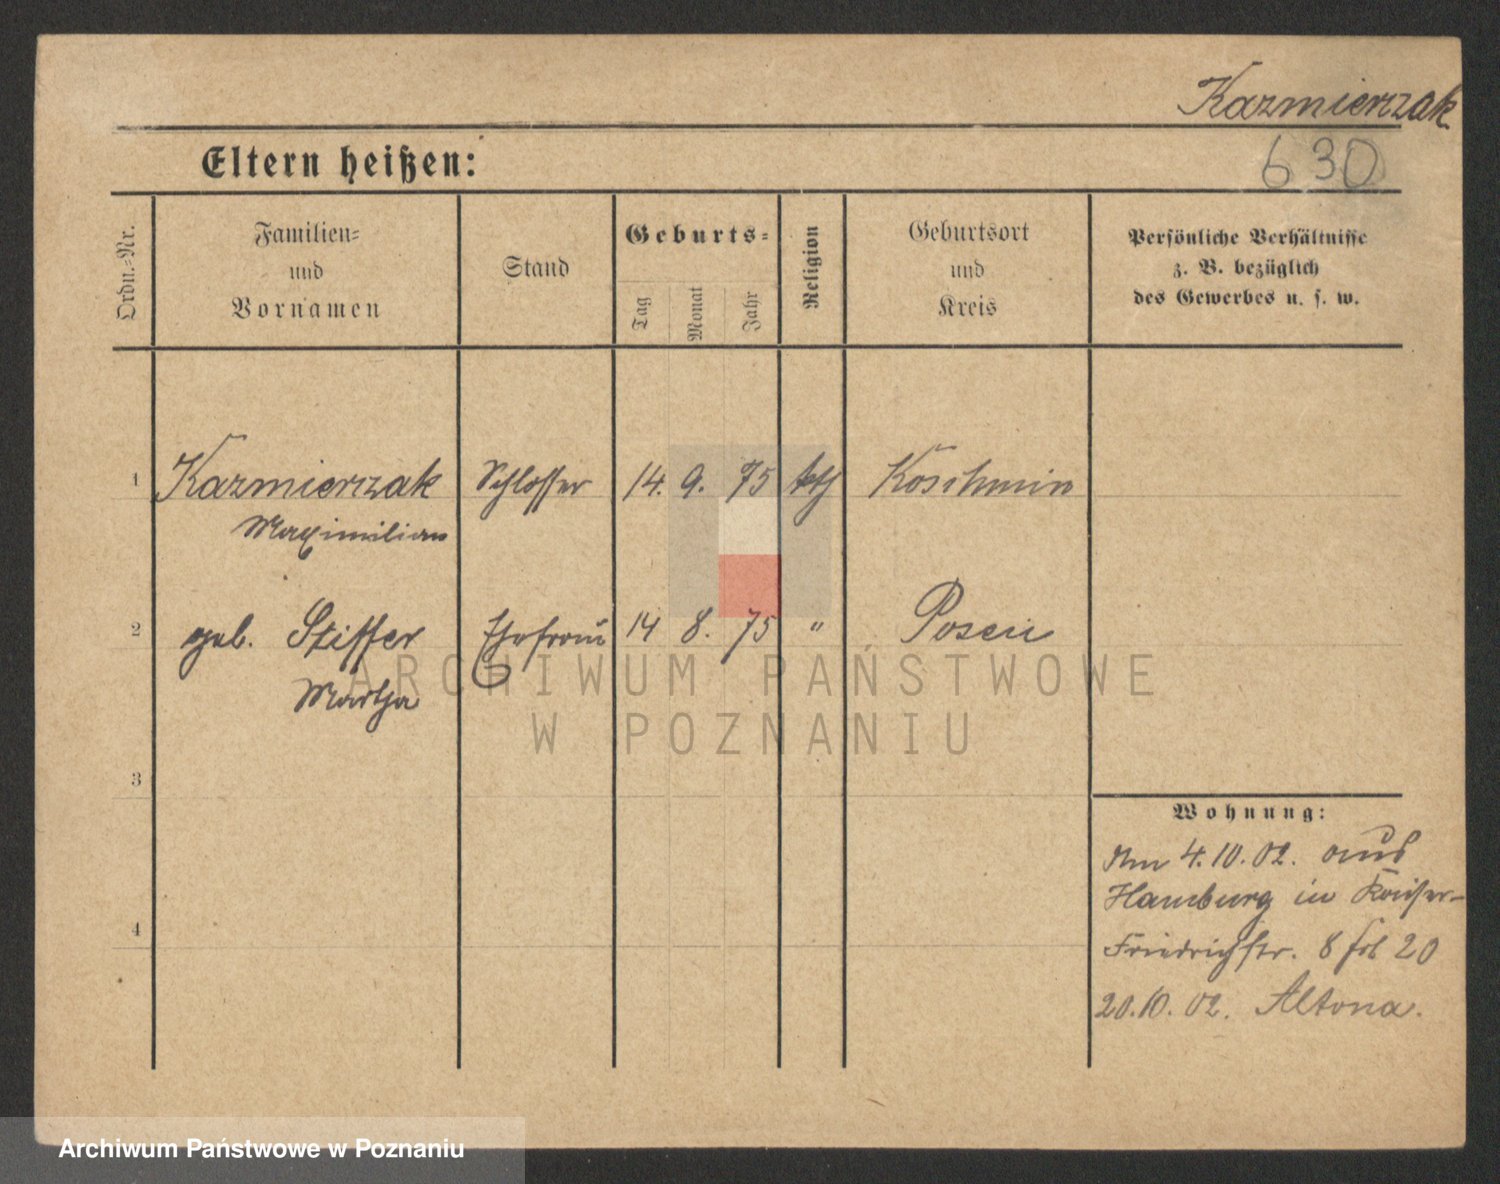 Kazmierczak
630
Eltern heißen:
Ordn.-Nr.
Familien-
und
Vornamen
Stand
Geburts-
Tag
Monat
Jahr
Religion
Geburtsort
und
Kreis
Persönliche Verhältnisse
z. B. bezüglich
des Gewerbes u. s. w.
1 Kazmierczak Schlosser 14. 9. 75 kth Koschmin
Maximilian
2 geb. Stiffer Ehefrau 14 8. 75 " Posen
Martha
ARCHIWUM PAŃSTWOWE
W POZNANIU
3
Wohnung:
Am 4.10.02. aus
Hamburg in Kaiser-
Friedrichstr. 8 20
4
20.10.02. Altona.
Archiwum Państwowe w Poznaniu